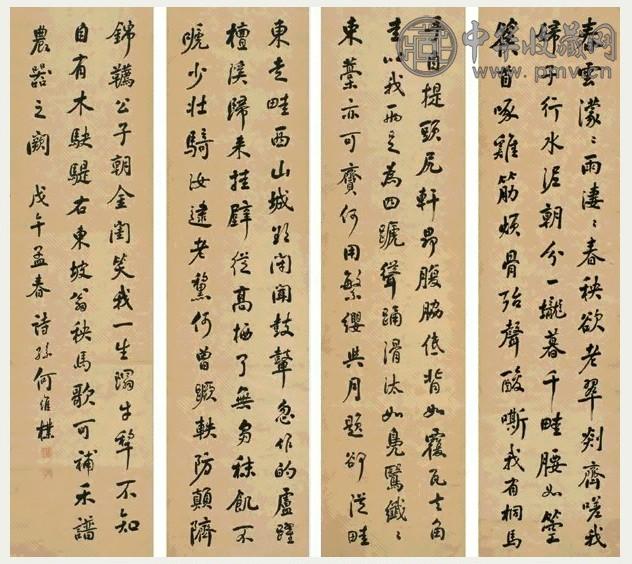 春雲濛〻雨淒〻春秧欲老翠剡齊嗟我
婦子行水泥朝分一壠暮千畦腰如箜
篌首啄雞筋煩骨殆聲酸嘶我有桐馬
手自提頭尻軒昂腹脇低背如覆瓦去角
圭以我兩足為四蹏聳踊滑汰如鳧鷖纖〻
束藁亦可齎何用繁纓與月題卻從畦
東走畦西山城欲閉聞鼓鼙忽作的盧躍
檀溪歸來挂壁從高栖了無芻秣飢不
嗁少壯騎汝逮老黧何曾蹶軼防顛隮
錦韉公子朝金閨笑我一生蹋牛犂不知
自有木駃騠右東坡翁秧馬歌可補禾譜
農器之闕 戊午孟春 詩孫何維樸
中华收藏网
www.pmv.cn